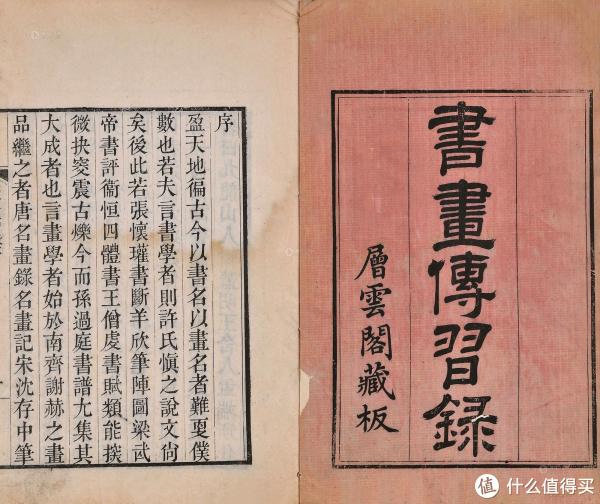 書畫傳習錄
層雲閣藏板
序
盈天地徧古今以書名以畫名者難㪅僕
數也若夫言書學者則許氏慎之說文尚
矣後此若張懷瓘書斷羊欣筆陣圖梁武
帝書評衞恒四體書王僧虔書賦類能撰
微抉窔震古爍今而孫過庭書譜尤集其
大成者也言畫學者始於南齊謝赫之畫
品繼之者唐名畫錄名畫記宋沈存中筆
值 什么值得买